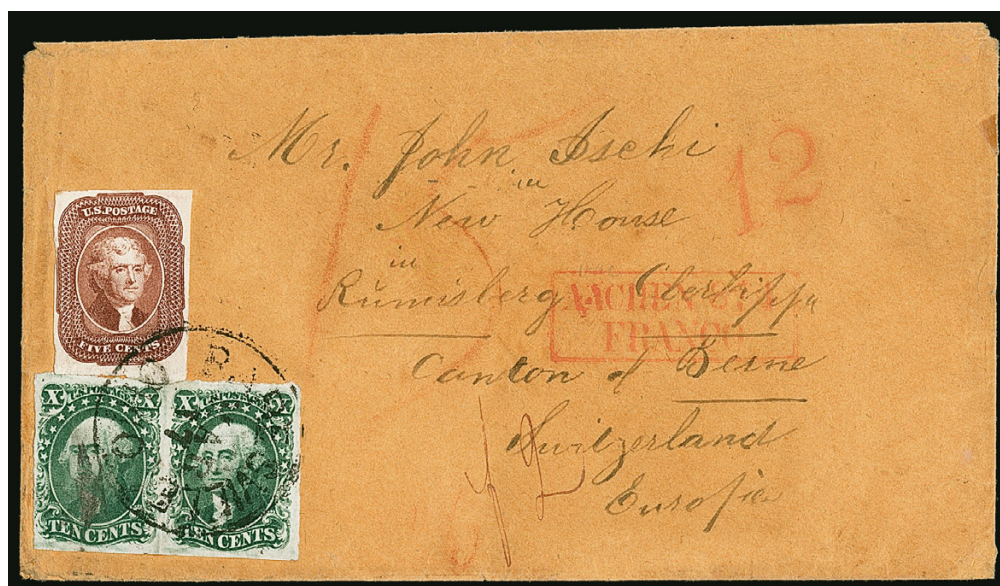 Mr. John Ischi
in
New House
in
Rümisberg Oberbipp
Canton of Berne
Switzerland
Europia
12
15
AACHEN
FRANCO
U.S. POSTAGE
FIVE CENTS
X U.S. POSTAGE X
TEN CENTS
X U.S. POSTAGE X
TEN CENTS